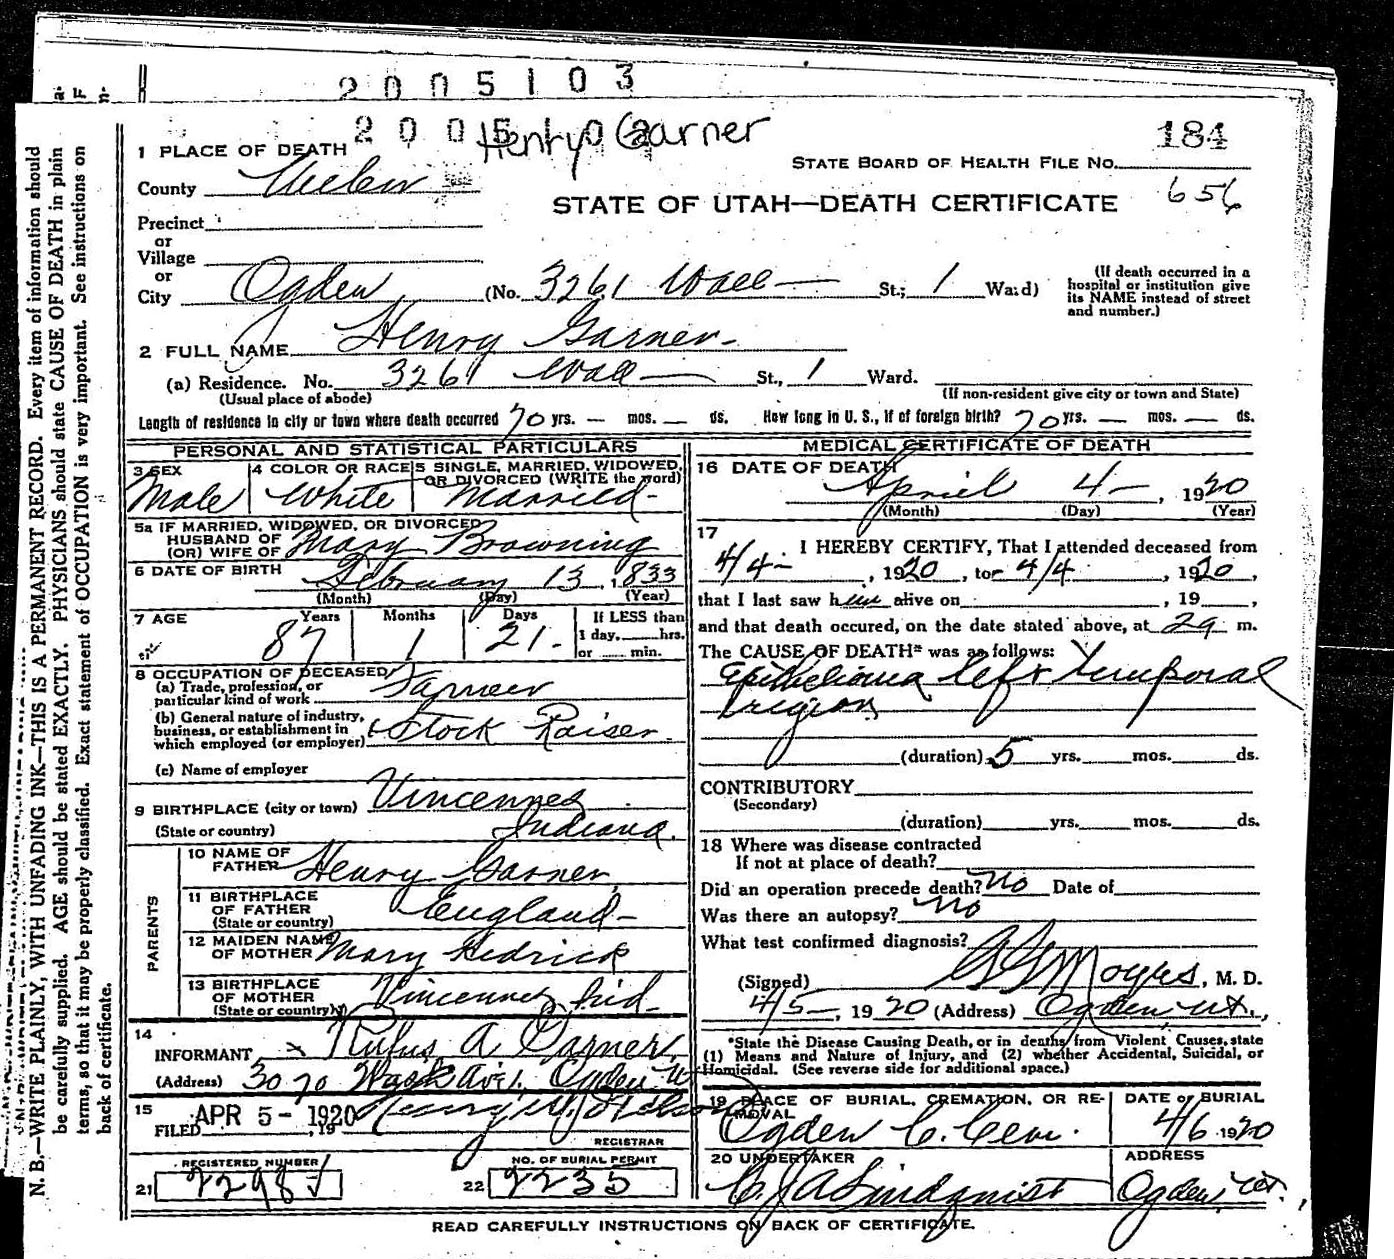 2005103
2005102
Henry Garner
184
STATE BOARD OF HEALTH FILE NO.
656
1 PLACE OF DEATH
County Weber
STATE OF UTAH—DEATH CERTIFICATE
Precinct
or
Village
or
City Ogden (No. 3261 Wall St.; 1 Ward)
(If death occurred in a hospital or institution give its NAME instead of street and number.)
2 FULL NAME Henry Garner
(a) Residence. No. 3261 Wall St., 1 Ward.
(Usual place of abode) (If non-resident give city or town and State)
Length of residence in city or town where death occurred 70 yrs. — mos. — ds. How long in U. S., if of foreign birth? 70 yrs. — mos. — ds.
PERSONAL AND STATISTICAL PARTICULARS
3 SEX Male
4 COLOR OR RACE White
5 SINGLE, MARRIED, WIDOWED, OR DIVORCED (WRITE the word) Married
5a IF MARRIED, WIDOWED, OR DIVORCED
HUSBAND OF
(OR) WIFE OF Mary Browning
6 DATE OF BIRTH February 13, 1833
(Month) (Day) (Year)
7 AGE Years 87 Months 1 Days 21 If LESS than 1 day, hrs. or min.
8 OCCUPATION OF DECEASED
(a) Trade, profession, or particular kind of work Farmer
(b) General nature of industry, business, or establishment in which employed (or employer) & Stock Raiser
(c) Name of employer
9 BIRTHPLACE (city or town) Vincennes
(State or country) Indiana.
PARENTS
10 NAME OF FATHER Henry Garner
11 BIRTHPLACE OF FATHER (State or country) England
12 MAIDEN NAME OF MOTHER Mary Hedrick
13 BIRTHPLACE OF MOTHER (State or country) Vincennes Ind
14
INFORMANT Rufus A. Garner
(Address) 3070 Wash Ave. Ogden Ut
15
FILED APR 5 - 1920, 19
REGISTRAR
21 REGISTERED NUMBER 2298
22 NO. OF BURIAL PERMIT 2235
MEDICAL CERTIFICATE OF DEATH
16 DATE OF DEATH April 4, 1920
(Month) (Day) (Year)
17
I HEREBY CERTIFY, That I attended deceased from
4/4, 1920, to 4/4, 1920,
that I last saw him alive on , 19 ,
and that death occured, on the date stated above, at 2a m.
The CAUSE OF DEATH* was as follows:
Epithelioma left temporal
region
(duration) 5 yrs. mos. ds.
CONTRIBUTORY
(Secondary)
(duration) yrs. mos. ds.
18 Where was disease contracted
If not at place of death?
Did an operation precede death? No Date of
Was there an autopsy? No
What test confirmed diagnosis?
(Signed) Moyes, M. D.
4/5, 1920 (Address) Ogden, Ut.,
*State the Disease Causing Death, or in deaths from Violent Causes, state
(1) Means and Nature of Injury, and (2) whether Accidental, Suicidal, or
Homicidal. (See reverse side for additional space.)
19 PLACE OF BURIAL, CREMATION, OR REMOVAL Ogden C. Cem.
DATE OF BURIAL 4/6 1920
20 UNDERTAKER Lindquist
ADDRESS Ogden, Ut.
READ CAREFULLY INSTRUCTIONS ON BACK OF CERTIFICATE.
N. B.—WRITE PLAINLY, WITH UNFADING INK—THIS IS A PERMANENT RECORD. Every item of information should
be carefully supplied. AGE should be stated EXACTLY. PHYSICIANS should state CAUSE OF DEATH in plain
terms, so that it may be properly classified. Exact statement of OCCUPATION is very important. See instructions on
back of certificate.